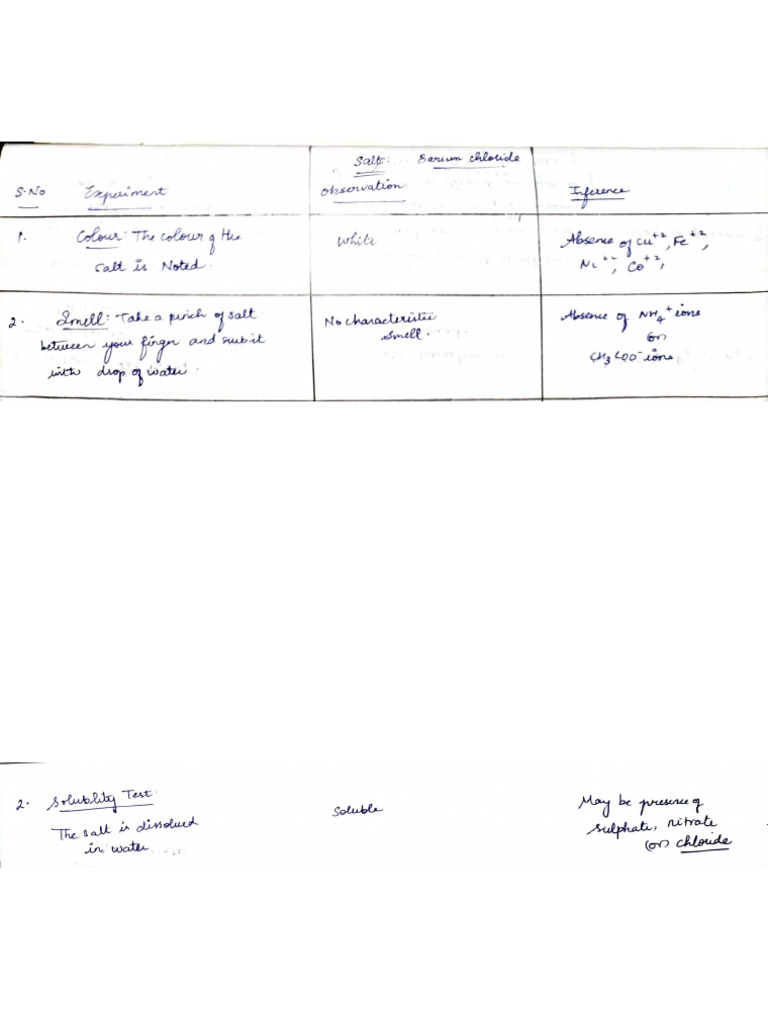 Salt: Barium chloride
S.No Experiment Observation Inference
1. Colour: The colour of the White Absence of Cu+2, Fe+2,
salt is Noted. Ni+2, Co+2,
2. Smell: Take a pinch of salt No characteristic Absence of NH4+ ions
between your finger and rub it smell. (or)
with drop of water. CH3COO- ions
2. Solublity Test Soluble May be presence of
The salt is dissolved sulphate, nitrate
in water (or) chloride